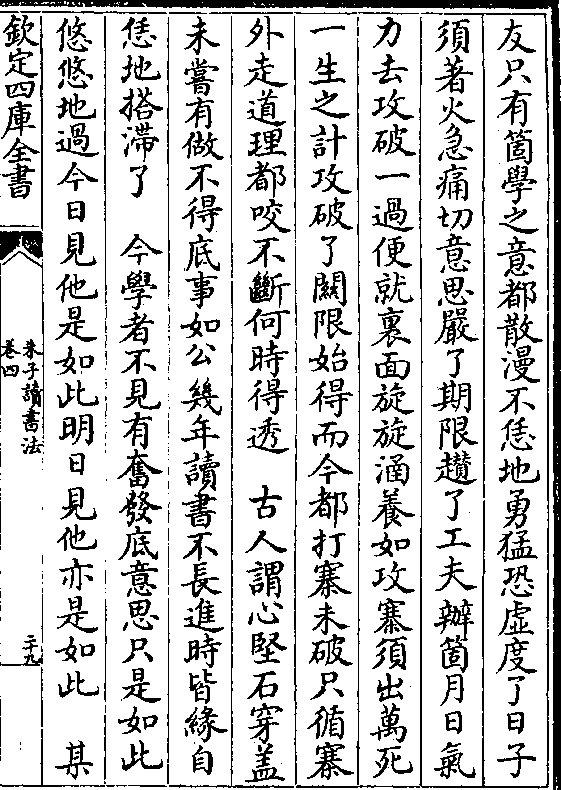 友只有箇學之意都散漫不恁地勇猛恐虛度了日子
須著火急痛切意思嚴了期限趲了工夫辦箇月日氣
力去攻破一過便就裏面旋旋涵養如攻寨須出萬死
一生之計攻破了關限始得而今都打寨未破只循寨
外走道理都咬不斷何時得透　古人謂心堅石穿蓋
未嘗有做不得底事如公幾年讀書不長進時皆緣自
恁地搭滯了　今學者不見有奮發底意思只是如此
悠悠地過今日見他是如此明日見他亦是如此　某
欽定四庫全書
朱子讀書法
卷四
二十九